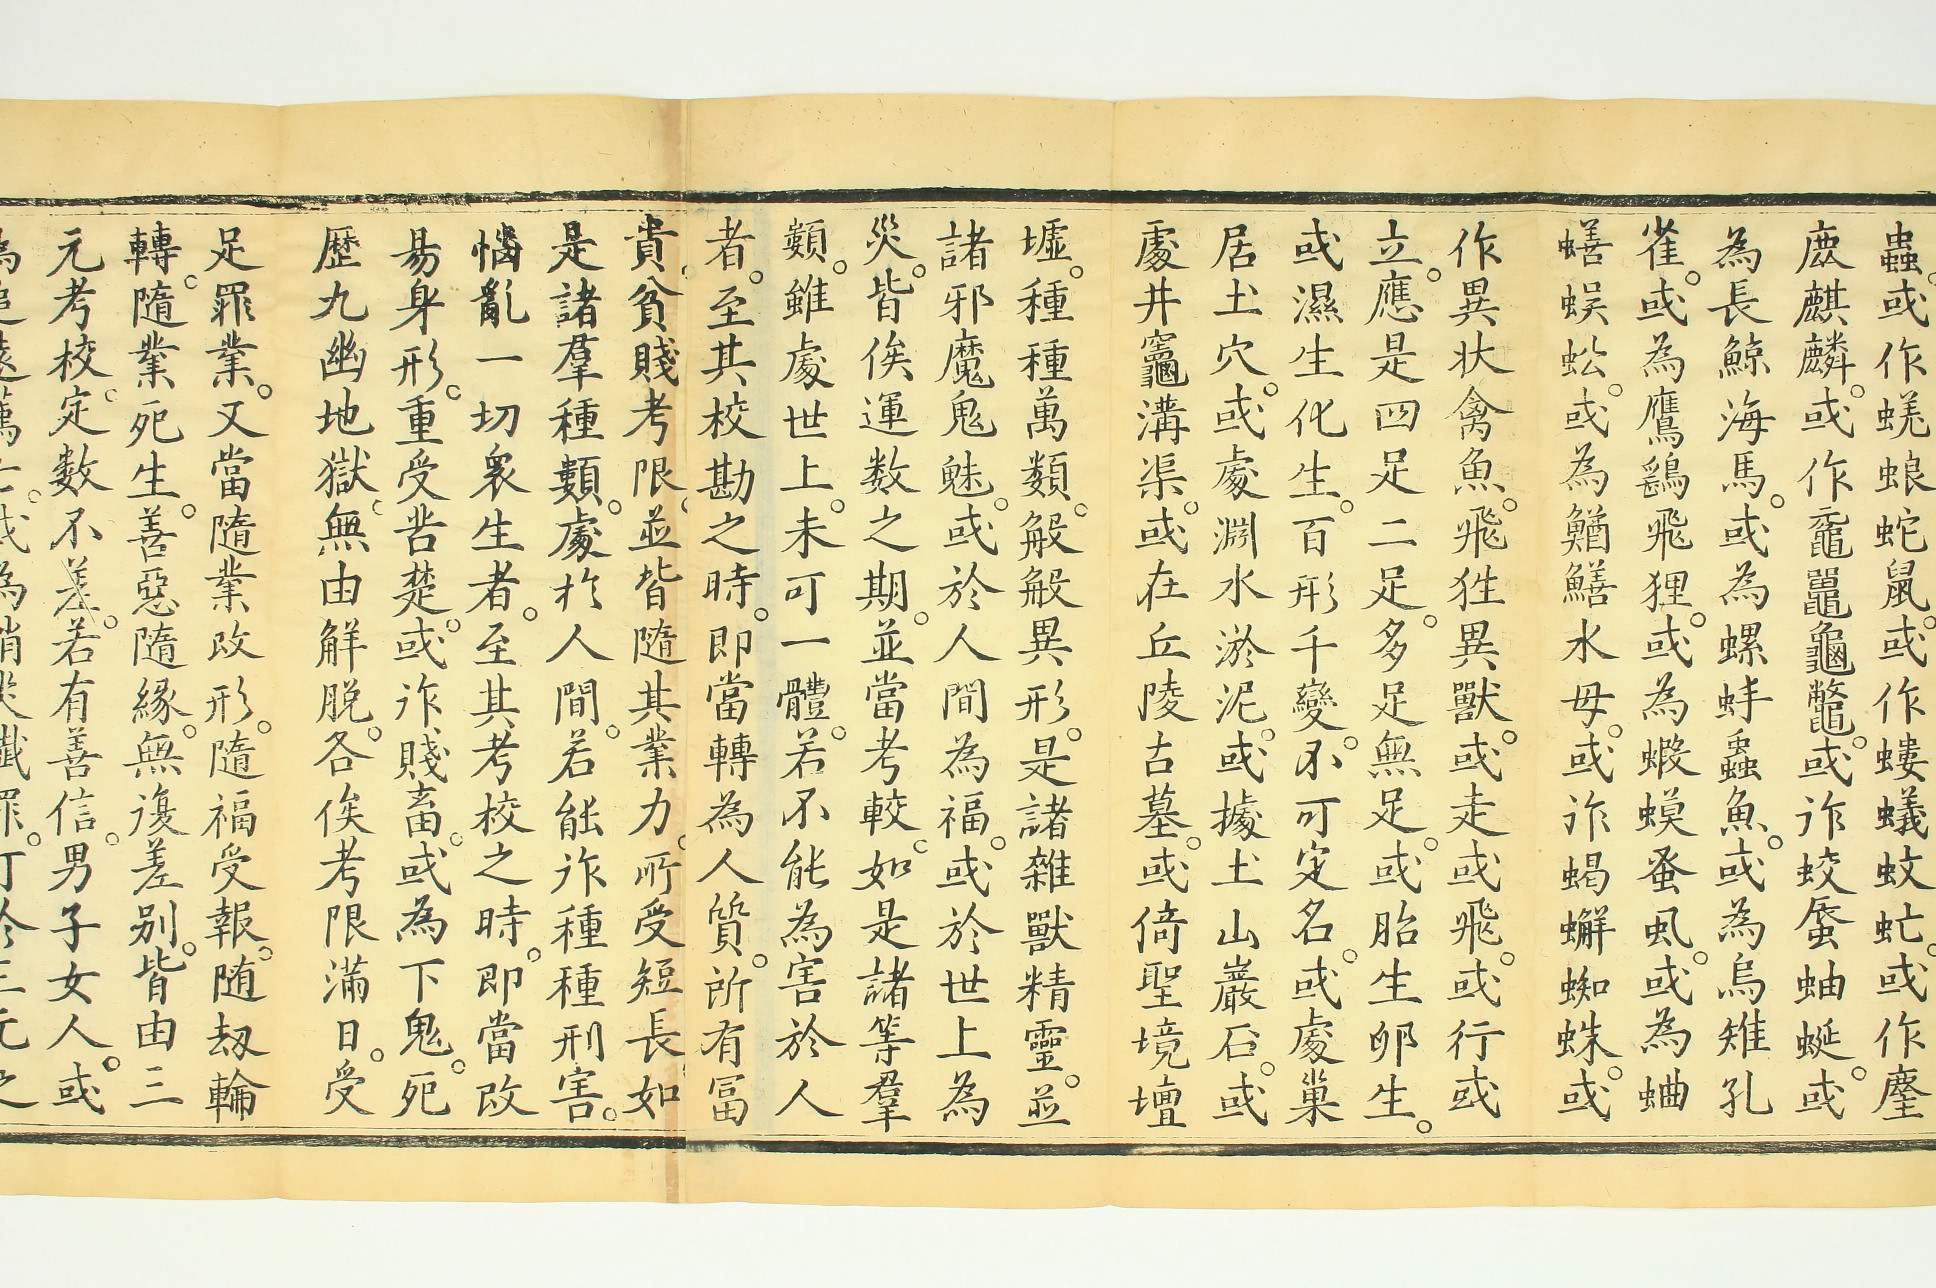 蟲。或作蜣蜋蛇鼠。或作螻蟻蚊虻。或作麈
鹿麒麟。或作黿鼉龜鱉。或作蛟蜃蚰蜒。或
為長鯨海馬。或為螺蚌蟲魚。或為烏雉孔
雀。或為鷹鷂飛狸。或為蝦蟆蚤虱。或為蛐
蟮蜈蚣。或為鰌鱔水母。或作蝎蠏蜘蛛。或
作異状禽魚。飛狌異獸。或走或飛。或行或
立。應是四足二足。多足無足。或胎生卵生。
或濕生化生。百形千變。不可定名。或處巢
居土穴。或處淵水淤泥。或據土山巖石。或
處井竈溝渠。或在丘陵古墓。或倚聖境壇
墟。種種萬類。般般異形。是諸雜獸精靈。並
諸邪魔鬼魅。或於人間為福。或於世上為
災。皆俟運数之期。並當考較。如是諸等羣
類。雖處世上。未可一體。若不能為害於人
者。至其校勘之時。即當轉為人質。所有冨
貴貧賤考限。並皆隨其業力。所受短長。如
是諸羣種類。處於人間。若能作種種刑害。
惱亂一切衆生者。至其考校之時。即當改
易身形。重受苦楚。或作賤畜。或為下鬼。死
歷九幽地獄。無由解脱。各俟考限滿日。受
足罪業。又當隨業改形。隨福受報。随劫輪
轉。隨業死生。善惡隨緣。無復差别。皆由三
元考校。定数不差。若有善信。男子女人。或
為追遠薦亡。或為消災懺罪。可於三元之